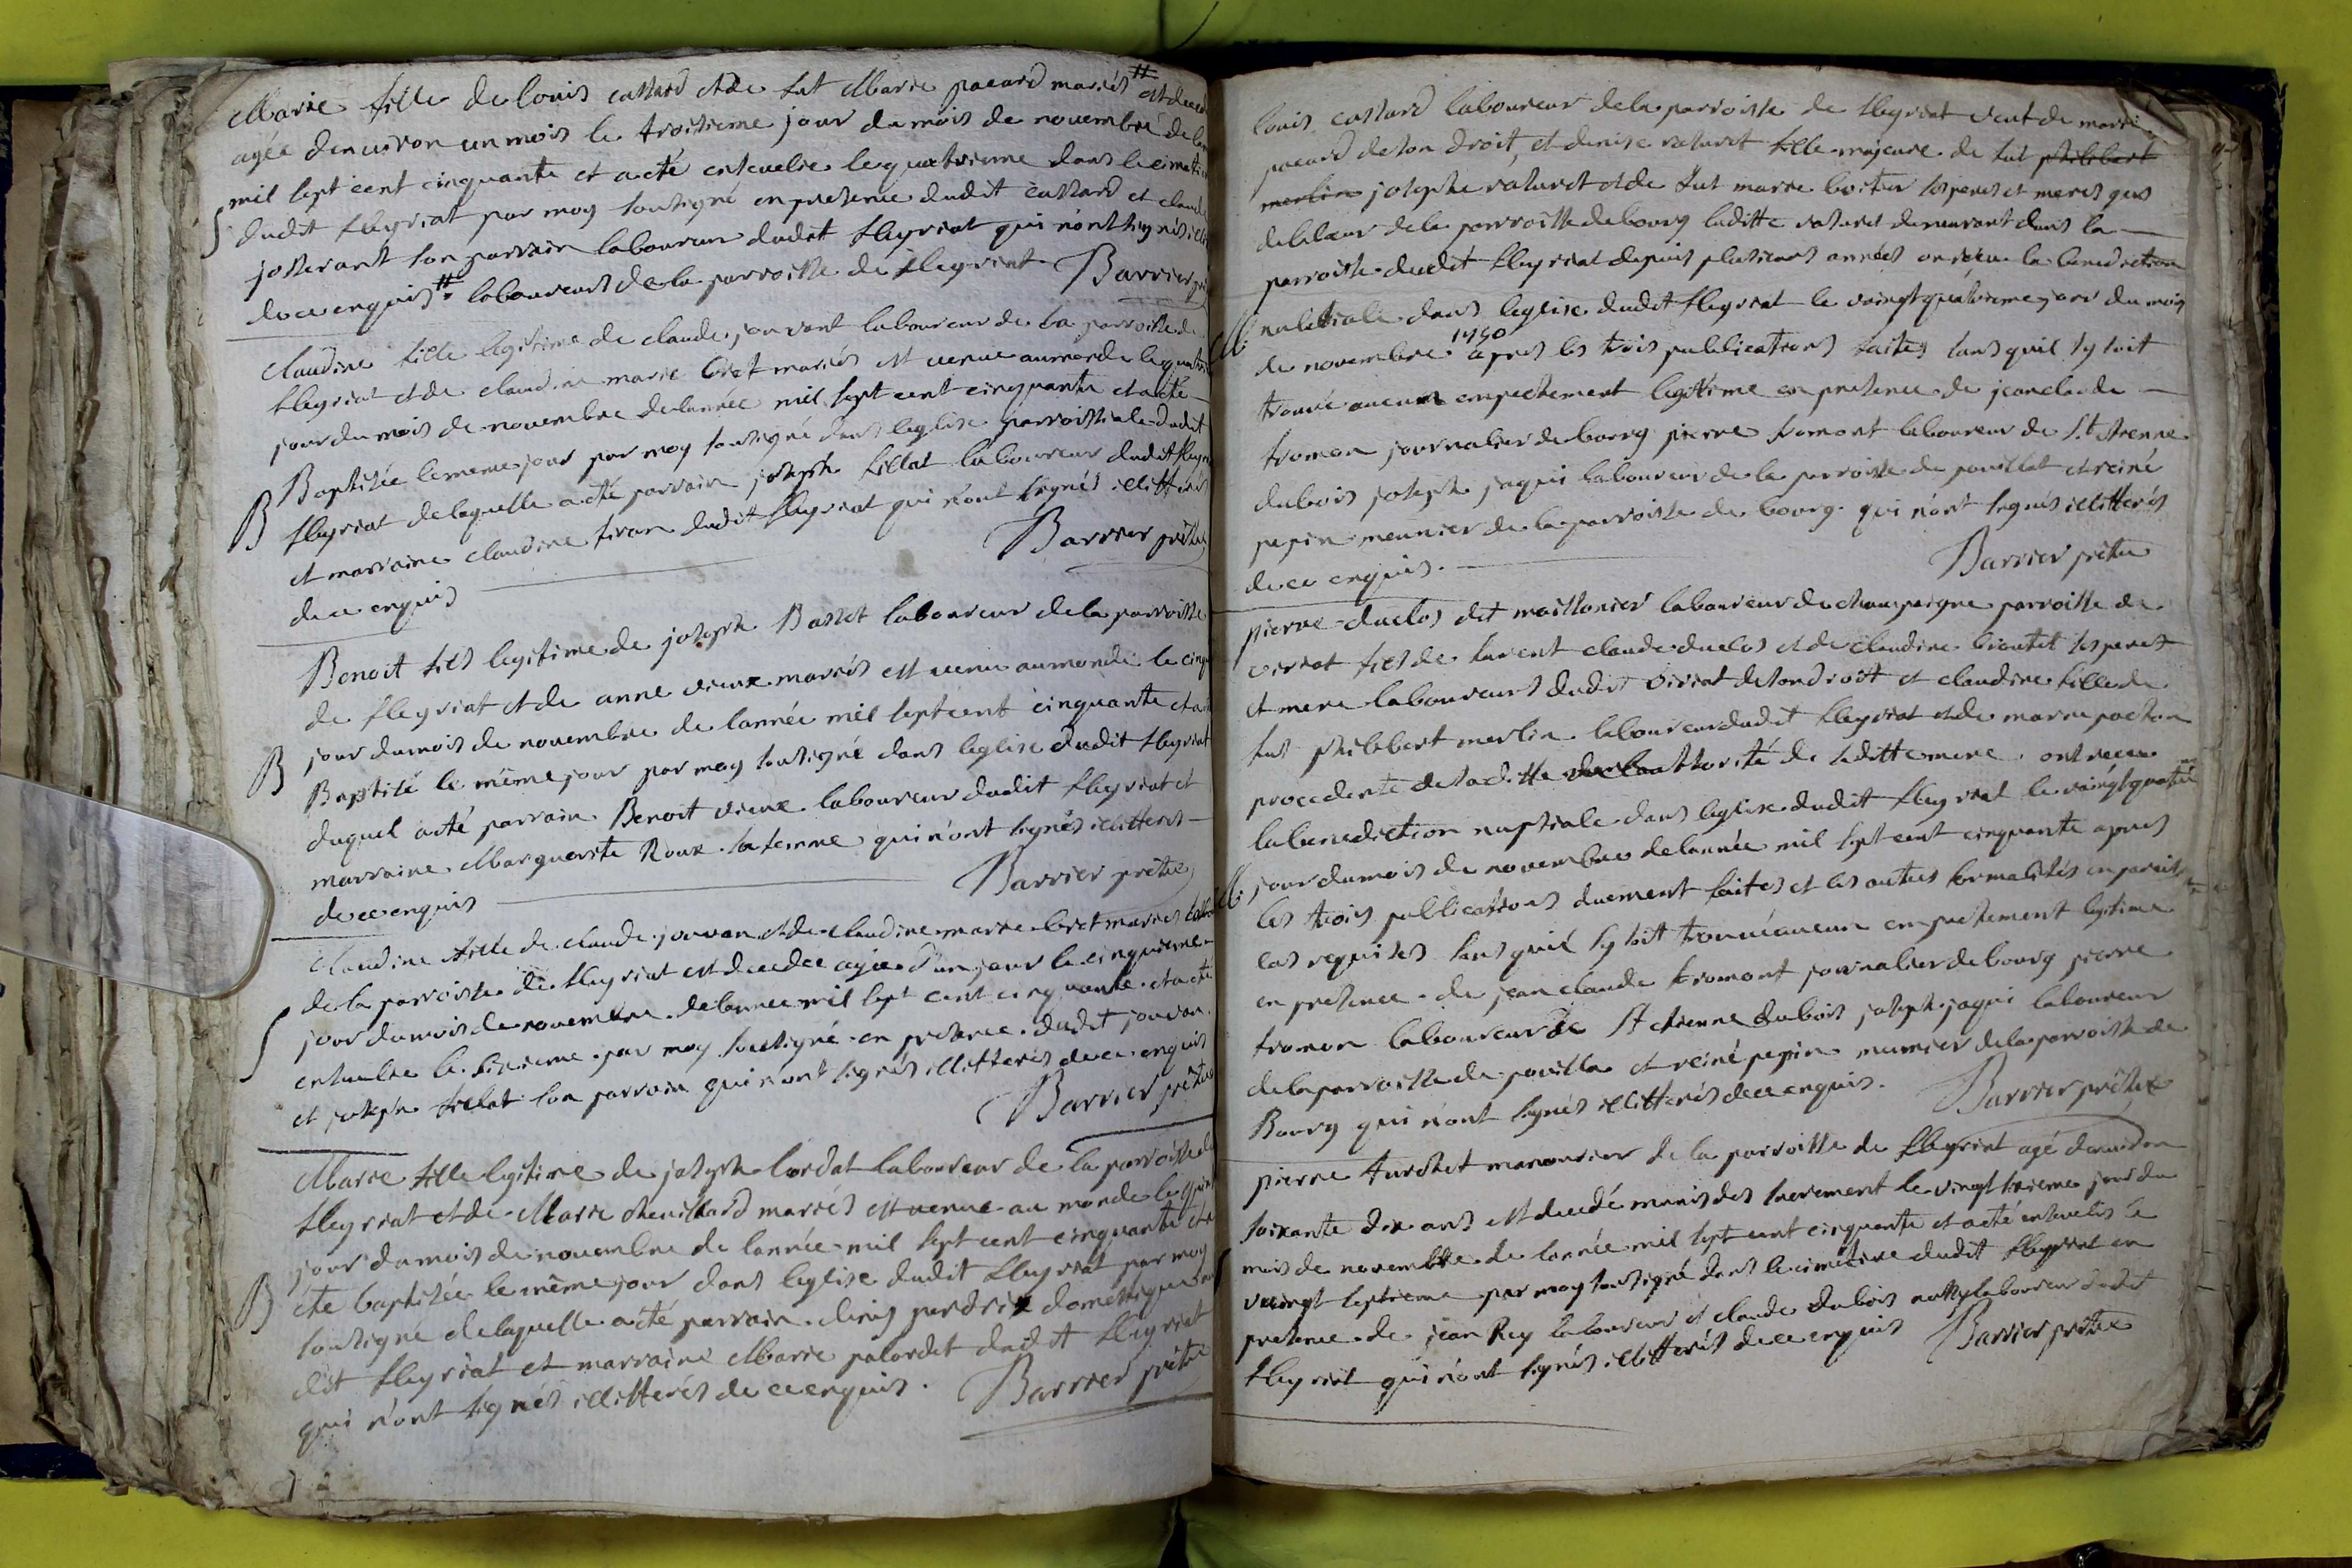 Marie fille de louis cattard et de fut Marie pacard mariés # est decedé
agée denuiron un mois le troisieme jour du mois de novembre de lan
mil sept cent cinquante et a eté ensevelie le quatrieme dans le cimeti
S dudit fleyriat par moy soussigné en presence dudit cattard et claude
josserant son parrain laboureur dudit fleyriat qui nont signés ill
de ce enquis # laboureurs de la parroisse de fleyriat Barrier p
Claudine fille legitime de claude jouvant laboureur de la parroisse de
fleyriat et de claudine marie bret mariés est venue au monde le quatri
jour du mois de novembre de lannée mil sept cent cinquante et a eté
Baptisée le meme jour par moy soussigné dans leglise parroissiale dudit
B fleyriat de laquelle a eté parrain joseph fillat laboureur dudit fleyri
et marraine claudine firon dudit fleyriat qui n'ont signés illitterés
de ce enquis Barrier prêtre
Benoit fils legitime de joseph Basset laboureur de la parroisse
de fleyriat et de anne vieux mariés est venu au monde le cinq
jour du mois de novembre de lannée mil sept cent cinquante et a
B Baptisé le même jour par moy soussigné dans leglise dudit fleyriat
duquel a eté parrain Benoit vieux laboureur dudit fleyriat et
marraine Marguerite Roux sa femme qui n'ont signés illitterés
de ce enquis Barrier prêtre
Claudine fille de claude jouvan et de claudine marie bret mariés labou
de la parroisse de fleyriat est decedee agée d'un jour le cinquieme
S jour du mois de novembre de lannee mil sept cent cinquante et a eté
ensevelie le sixieme par moy soussigné en presence dudit jouvan
et joseph fillat son parrain qui n'ont signés illitterés de ce enquis
Barrier prêtre
Marie fille legitime de joseph cordat laboureur de la parroisse de
fleyriat et de Marie chevillard mariés est venue au monde le quin
jour du mois de novembre de lannée mil sept cent cinquante et a
B éte baptisée le même jour dans leglise dudit fleyriat par moy
soussigné de laquelle a eté parrain denis perdrix domestique au
dit fleyriat et marraine Marie palordet dudit fleyriat
qui n'ont signés illitterés de ce enquis. Barrier prêtre
louis cattard laboureur de la parroisse de fleyriat veuf de marie
pacard de son droit, et denise raturet fille majeure de fut philibert
merlin josephe raturet et de fut marie boitier ses peres et meres gens
de labeur de la parroisse de bourg laditte raturet demeurant dans la
parroisse dudit fleyriat depuis plusieurs années on réçeu la benediction
M. nubtiale dans leglise dudit fleyriat le vaingt quatrieme jour du mois
de novembre 1750 apres les trois publications faites sans quil sy soit
trouvé aucun empechement legitime en presence de jean claude
froman journalier de bourg pierre fromont laboureur de St etienne
dubois joseph jaqui laboureur de la parroisse de pouillat et reiné
pepin meunier de la parroisse de bourg qui n'ont signés illitterés
de ce enquis. Barrier prêtre
pierre duclos dit maissonier laboureur de champaigne parroisse de
viriat fils de furent claude duclos et de claudine brontet ses peres
et mere laboureurs dudit viriat de son droit et claudine fille de
fut philibert merlin laboureur dudit fleyriat et de marie pochon
procedente de sa ditte de la uthorité de saditte mere ont receu
la benediction nuptiale dans leglise dudit fleyriat le vaingt quatrieme
M. jour du mois de novembre de lannée mil sept cent cinquante apres
les trois publications duement faites et les autres formalités en pareils
cas requises sans quil sy soit trouvé aucun empechement legitime
en presence de jean claude fromont journalier de bourg pierre
fromon laboureur de St etienne dubois joseph jaqui laboureur
de la parroisse de pouilla et reiné pepin meunier de la parroisse de
Bourg qui n'ont signés illitterés de ce enquis. Barrier prêtre
pierre turchet manouvrier de la parroisse de fleyriat agé denviron
soixante dix ans est decedé munis des sacrement le vingt sixieme jour du
S mois de novembre de lannée mil sept cent cinquante et a eté ensevelis le
vaingt septieme par moy soussigné dans le cimetiere dudit fleyriat en
presence de jean Rey laboureur et claude dubois aussy laboureur dudit
fleyriat qui n'ont signés illitterés de ce enquis Barrier prêtre